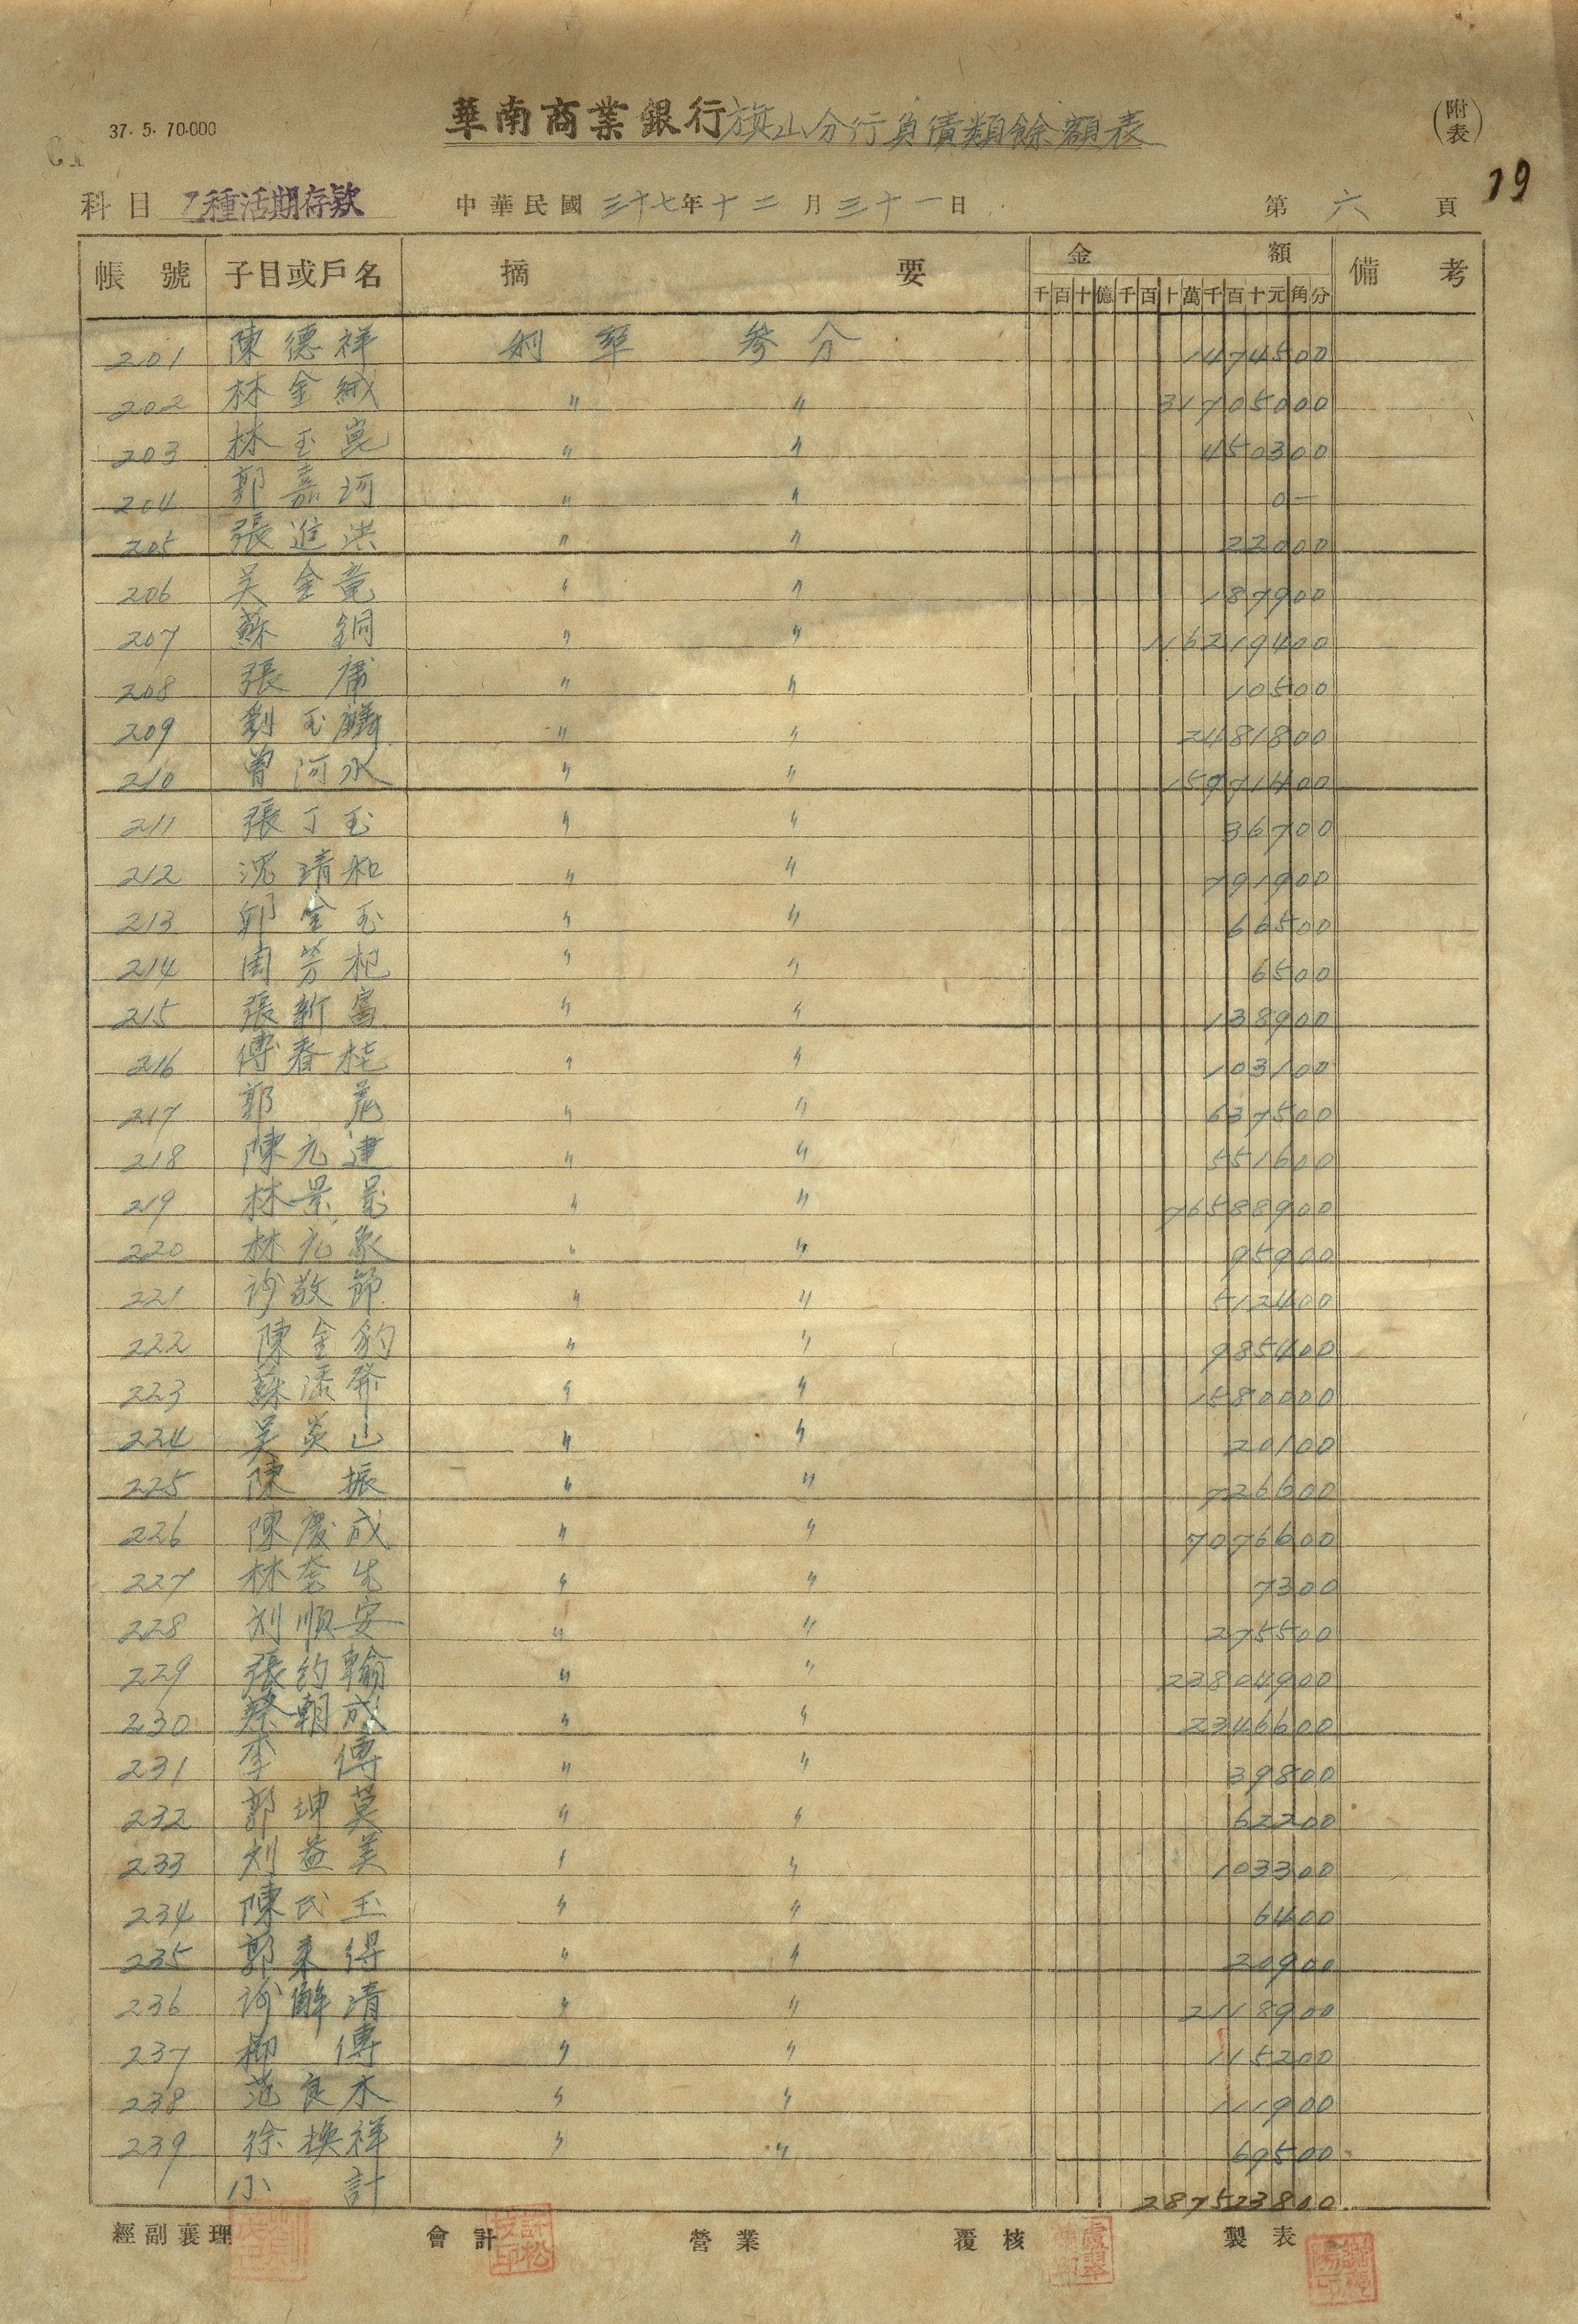 37. 5. 70.000
華南商業銀行旗山分行負債類餘額表
(附表)
19
科目 乙種活期存款 中華民國三十七年十二月三十一日 第六頁
帳號 子目或戶名 摘要 金額 備考
千百十億千百十萬千百十元角分
201 陳德祥 利率 參分 1474500
202 林金絨 〃 〃 31705000
203 林玉崑 〃 〃 450300
204 郭嘉河 〃 〃 0—
205 張進洪 〃 〃 22000
206 吳金竜 〃 〃 187900
207 蘇銅 〃 〃 116219400
208 張庸 〃 〃 10500
209 劉玉麟 〃 〃 2481800
210 曾河水 〃 〃 15971400
211 張丁玉 〃 〃 36700
212 沈清和 〃 〃 791900
213 郭金玉 〃 〃 66500
214 周芳杞 〃 〃 6500
215 張新富 〃 〃 138900
216 傅春桂 〃 〃 103100
217 郭 〃 〃 637500
218 陳元建 〃 〃 551600
219 林景 〃 〃 76588900
220 林元象 〃 〃 95900
221 敬節 〃 〃 512400
222 陳金豹 〃 〃 985400
223 蘇添發 〃 〃 1580000
224 吳炎山 〃 〃 20100
225 陳振 〃 〃 726600
226 陳慶成 〃 〃 7076600
227 林 生 〃 〃 7300
228 刘順安 〃 〃 275500
229 張約翰 〃 〃 23804900
230 蔡朝成 〃 〃 2346600
231 李傳 〃 〃 39800
232 郭坤莫 〃 〃 62200
233 刘益美 〃 〃 103300
234 陳氏玉 〃 〃 6400
235 郭来得 〃 〃 20900
236 清 〃 〃 2118900
237 柳傳 〃 〃 115200
238 范良木 〃 〃 111900
239 徐換祥 〃 〃 69500
小計 287523800
經副襄理 會計 營業 覆核 製表